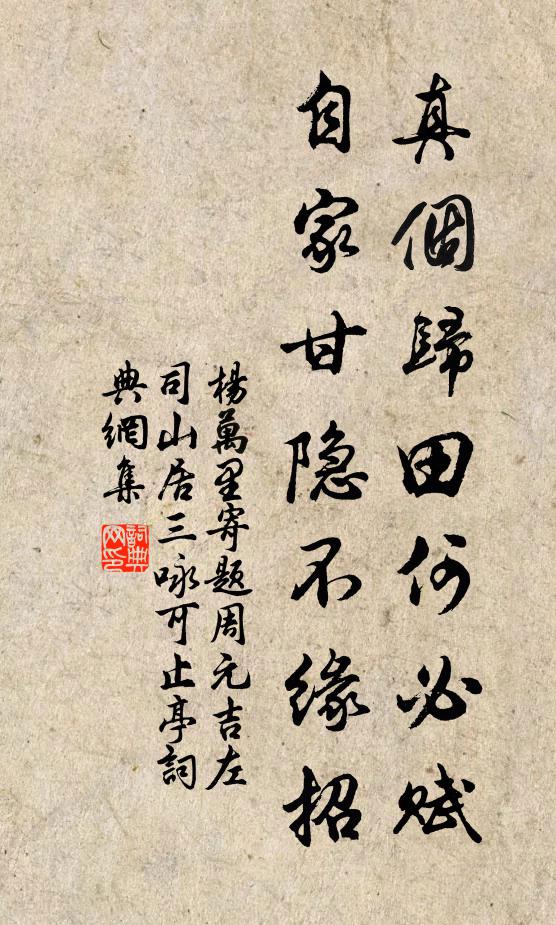 真個歸田何必賦
自家甘隐不缘招
楊萬里寄題周元吉左
司山居三咏可止亭詞
典網集
詞典
网印